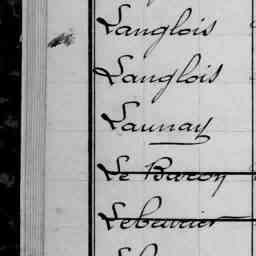 Langlois
Langlois
Launay
Le Baron
Lebeurier